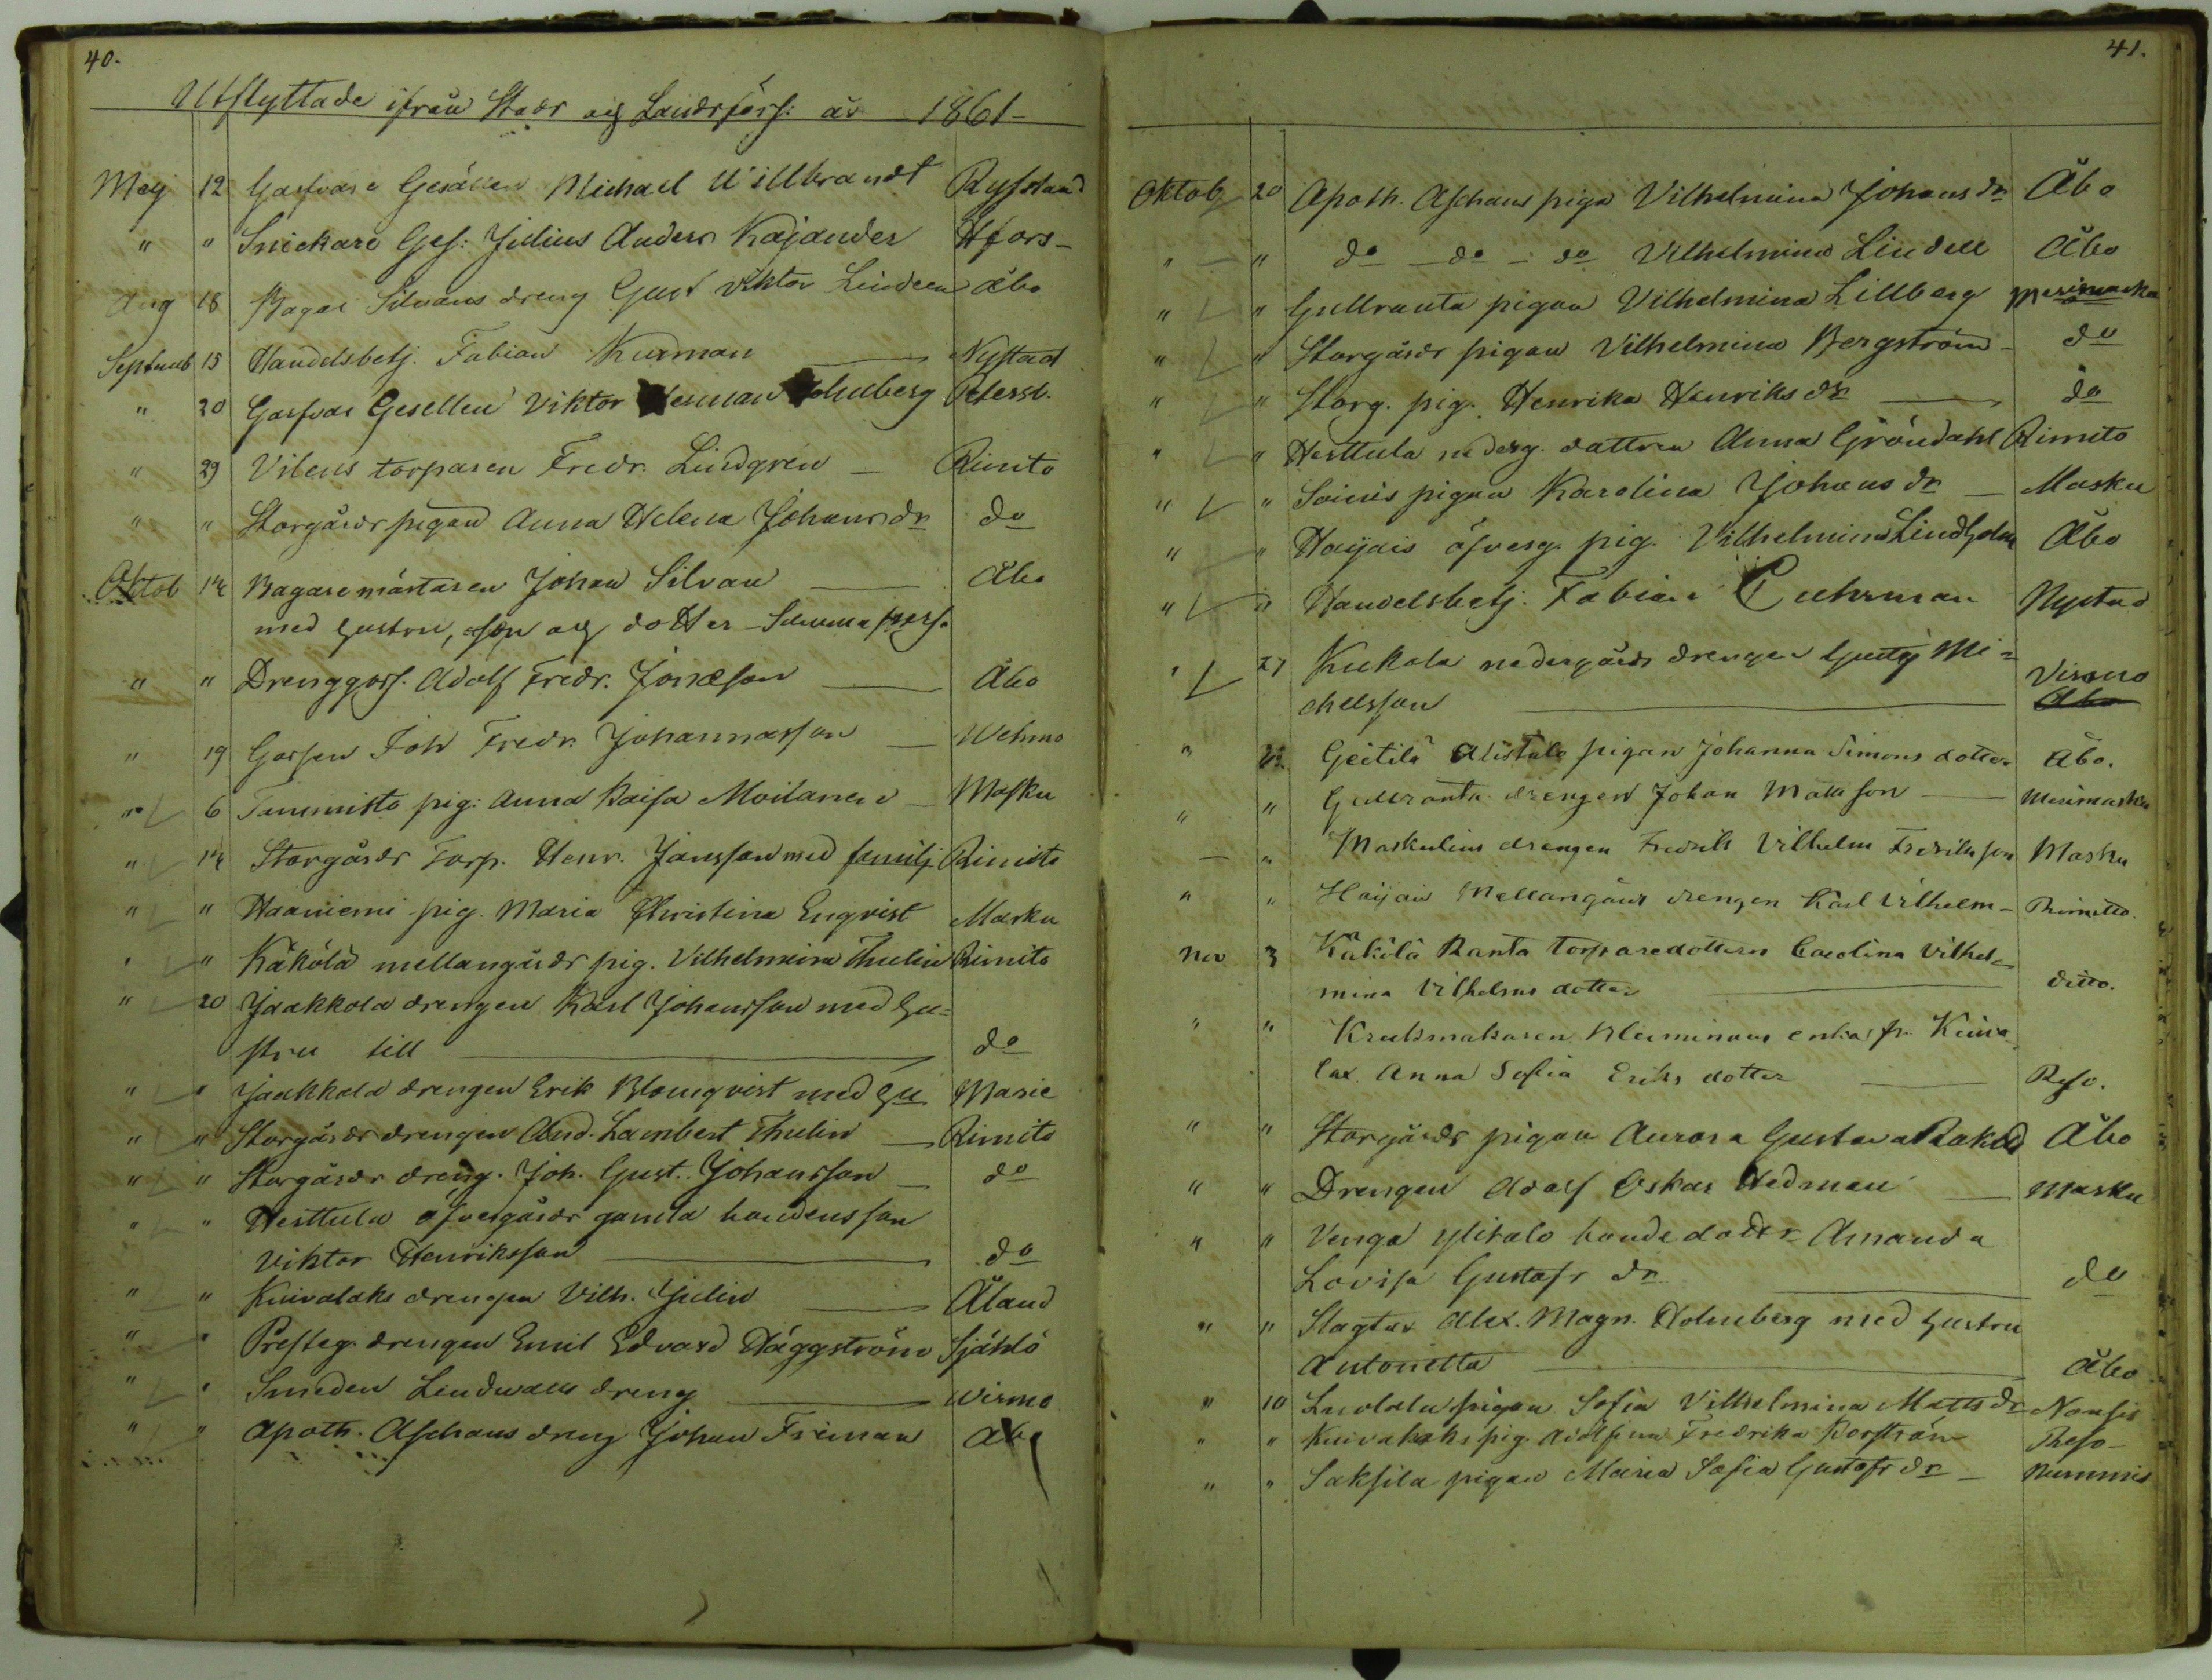 40.
Utflyttade ifrån Stads och Landsförs: år 1861-
Maj 12 Garfvare Gesällen Michael Willbrandt Ryssland
" " Snickare Ges: Julius Anders Kajander Hfors-
Aug 18 Bagar Silvans dreng Gust Viktor Lindeen Åbo
Septemb 15 Handelsbetj. Fabian Kurman Nystad
" 20 Garfvar Gesellen Viktor Herman Holmberg Petersb.
" 29 Vilens torparen Fredr. Lindgren Rimito
" " Storgårds pigan Anna Helena Johansdr do
Oktob 14 Bagaremästaren Johan Silvan Åbo
med hustru, son och dotter
" " Drenggoss. Adolf Fredr. Jonasson Åbo
" 19 Gossen Joh Fredr. Johannasson Wehmo
" 6 Tammisto pig: Anna Kaisa Moilanen Masku
" 14 Storgårds Torp. Henr. Jansson med familj Rimito
" " Haaniemi pig. Maria Christina Enqvist Masku
" " Käkölä mellangårds pig. Vilhelmina Thulin Rimito
" 20 Jaakkola drengen Karl Johansson med hu=
stru till do
" " Jaakkola drengen Erik Blomqvist med hu Marie
" " Storgårds drengen And. Lambert Thulin Rimito
" " Storgårds dreng. Joh. Gust. Johansson do
" " Herttula öfvergårds gamla bondensson
Viktor Henriksson do
" " Kuivalaks drengen Vilh. Julin Åland
" " Presteg. drengen Emil Edvard Häggström Sjählö
" " Smeden Lindwalls dreng Wirmo
" " Apoth. Aschans dreng Johan Friman Abo
41.
Oktob 20 Apoth. Aschans piga Vilhelmina Johansdr Åbo
" " do do do Vilhelmina Lindell Åbo
" " Gullranta pigan Vilhelmina Lillberg Merimasku
" " Storgårds pigan Vilhelmina Bergström do
" " Storg. pig. Henrika Henriksdr do
" " Herttula nederg. dottren Anna Gröndahl Rimito
" " Soinis pigan Karolina Johansdr Masku
" " Haijais öfverg. pig. Vilhelmina Lindholm Åbo
" " Handelsbetj. Fabian Cuhrman Nystad
" 27 Kukola nedergårds drengen Gustaf Mi=
chelsson Virmo
Åbo
" " Geitilä Alistalo pigan Johanna Simons dotter Åbo.
" " Gullranta drengen Johan Mattsson Merimasku
" Maskulins drengen Fredrik Vilhelm Fredriksson Masku
" " Haijais Mellangårds drengen Karl Vilhelm- Rimitto.
Nov 3 Käkölä Ranta torparedottern Carolina Vilhel=
mina Vilhelms dotter ditto.
" " Krukmakaren enka fr. Kuiva
lax. Anna Sofia Eriks dotter Reso.
" " Storgårds pigan Aurora Gustava Åbo
" " Drengen Adolf Oskar Hedman Masku
" " Venga ylitalo bonde dottr Amanda
Lovisa Gustafs dr do
" " Slagtar Alex. Magn. Holmberg med hustru
Antonetta Åbo
" 10 Luolala pigan Sofia Vilhelmina Matts dr Nousis
" " Kuivalaks pig. Adolfina Fredrika Reso
" " Saksila pigan Maria Sofia Gustafs dr Nummis